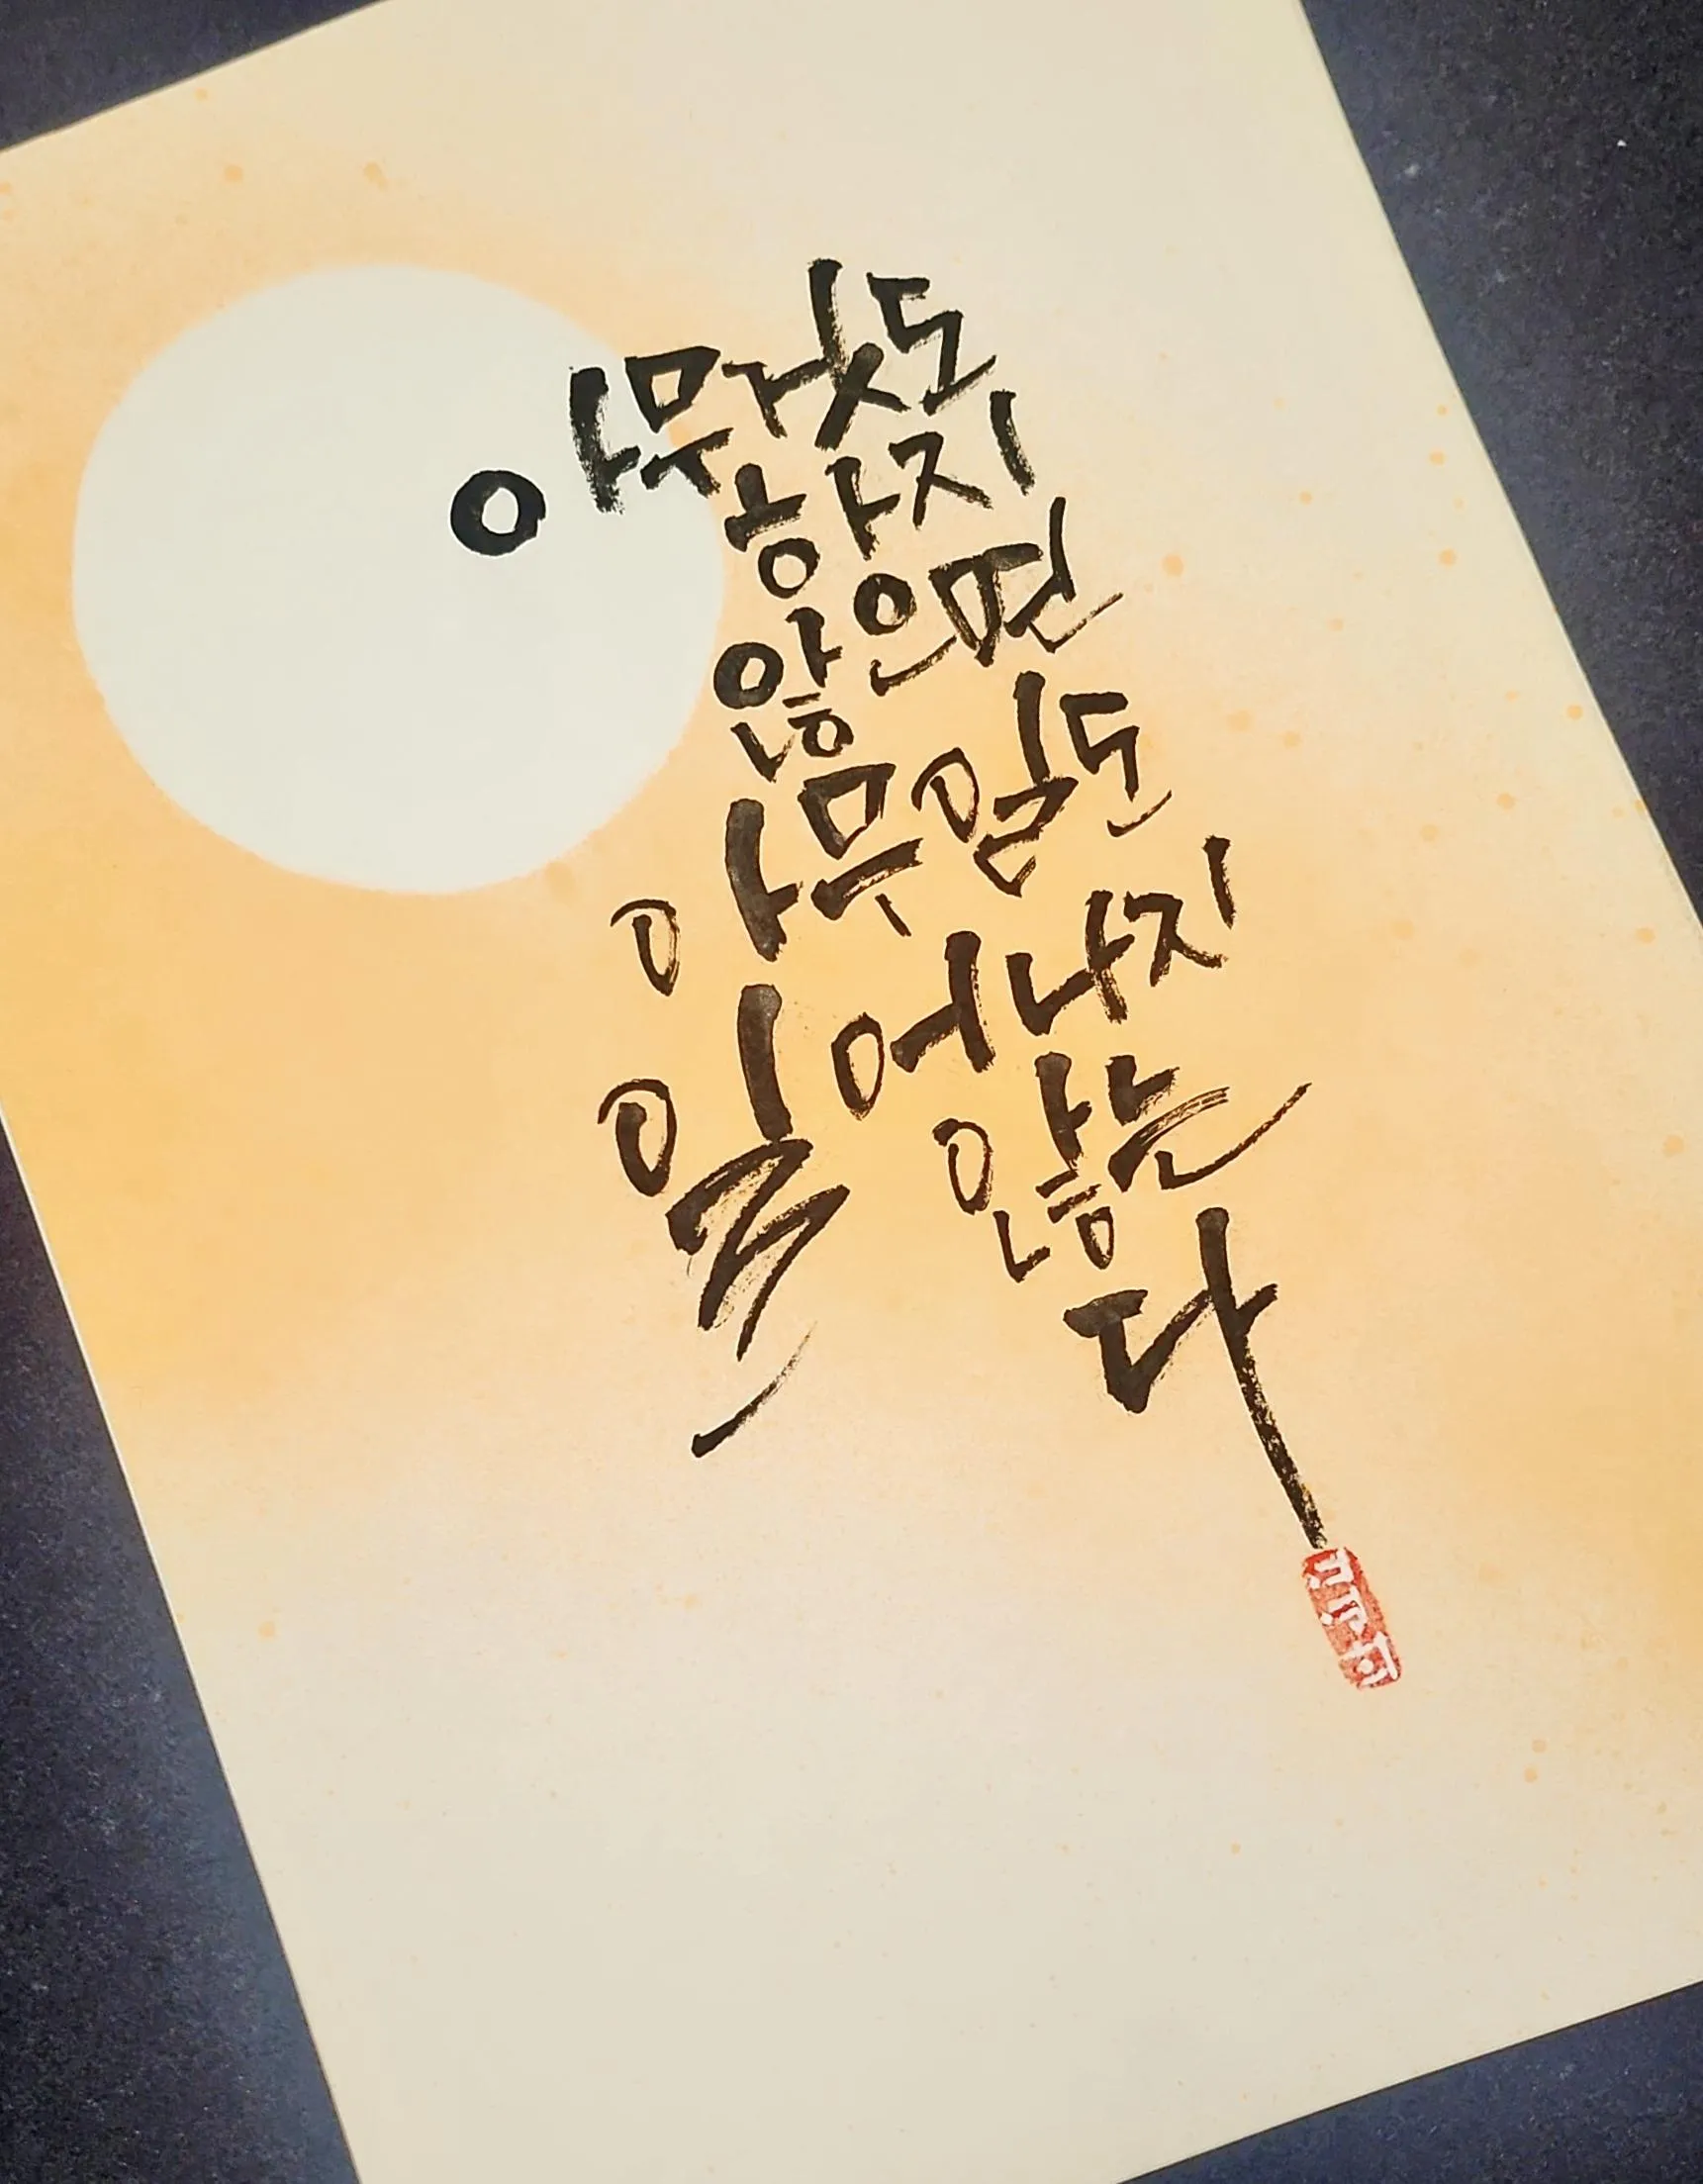 아무것도
하지
않으면
아무일도
일어나지
않는
다